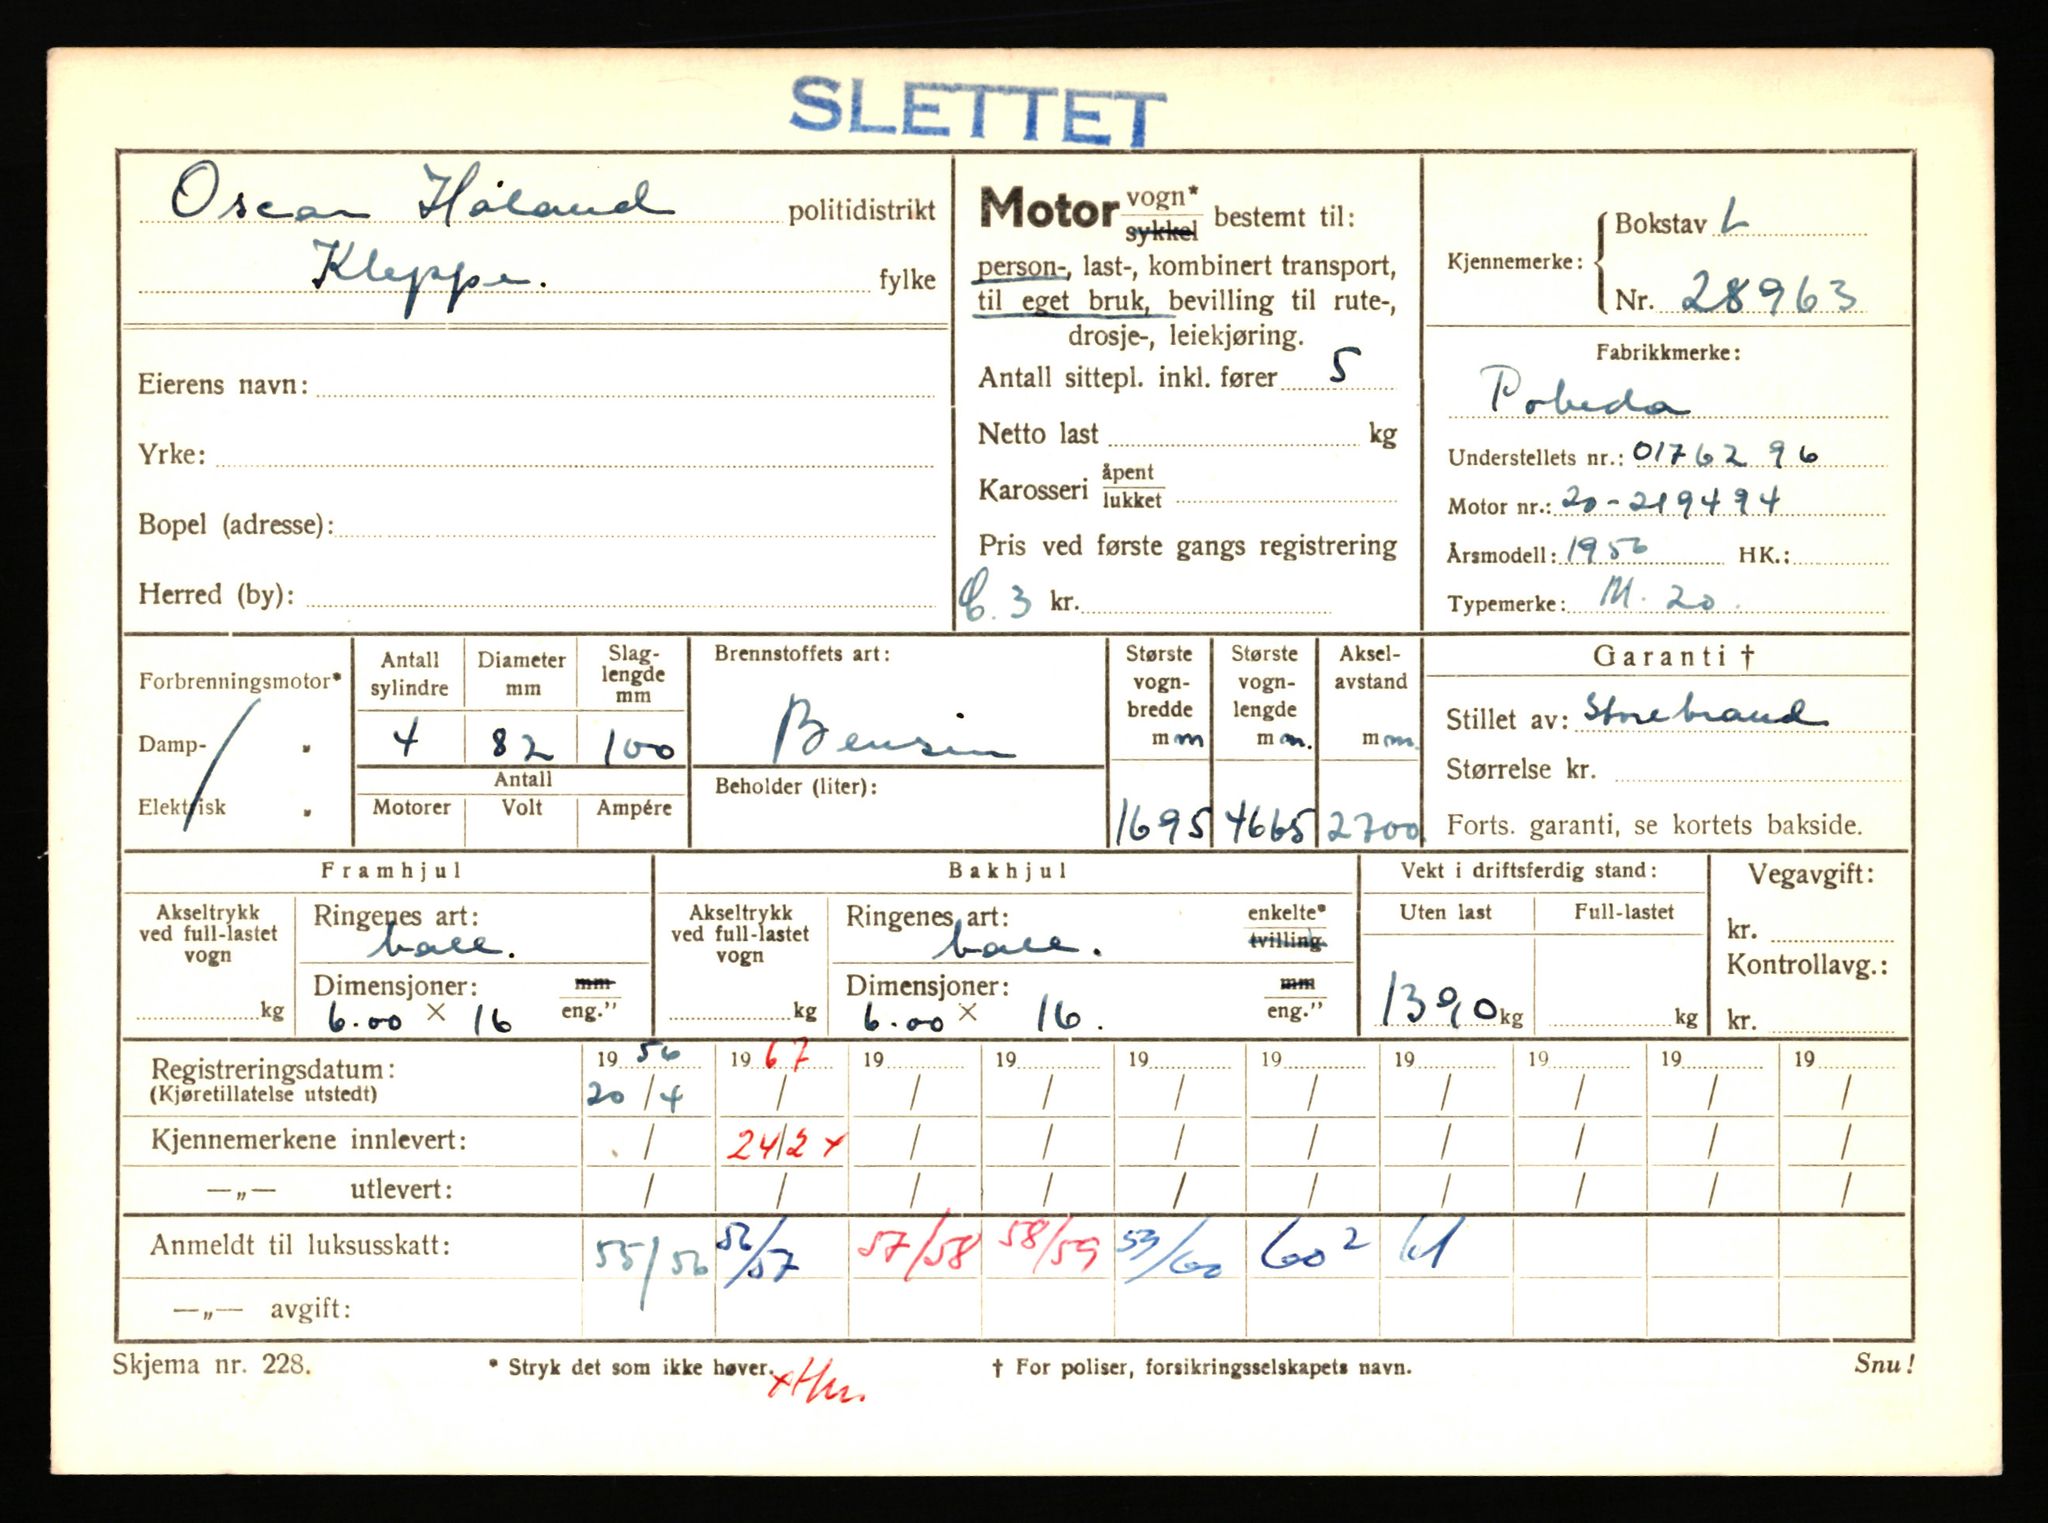 SLETTET
Oscar Håland politidistrikt
Kleppe. fylke
Eierens navn:
Yrke:
Bopel (adresse):
Herred (by):
Motor vogn* sykkel bestemt til:
person-, last-, kombinert transport,
til eget bruk, bevilling til rute-,
drosje-, leiekjøring.
Antall sittepl. inkl. fører 5
Netto last kg
Karosseri åpent lukket
Pris ved første gangs registrering
kr.
Kjennemerke: Bokstav L
Nr. 28963
Fabrikkmerke:
Pobeda
Understellets nr.: 0176296
Motor nr.: 20-219494
Årsmodell: 1956 HK.:
Typemerke: M. 20.
Forbrenningsmotor*
Damp- "
Elektrisk "
Antall sylindre
4
Diameter mm
82
Slag-
lengde
mm
100
Antall
Motorer Volt Ampére
Brennstoffets art:
Bensin
Beholder (liter):
Største
vogn-
bredde
m m
1695
Største
vogn-
lengde
m m.
4665
Aksel-
avstand
m m.
2700
Garanti †
Stillet av: Storebrand
Størrelse kr.
Forts. garanti, se kortets bakside.
Framhjul
Akseltrykk
ved full-lastet
vogn
kg
Ringenes art:
ball.
Dimensjoner: mm eng."
6.00 × 16
Bakhjul
Akseltrykk
ved full-lastet
vogn
kg
Ringenes art: enkelte* tvilling
ball.
Dimensjoner: mm eng."
6.00 × 16.
Vekt i driftsferdig stand:
Uten last Full-lastet
1390 kg kg
Vegavgift:
kr.
Kontrollavg.:
kr.
Registreringsdatum: 19 56 19 67 19 19 19 19 19 19 19 19
(Kjøretillatelse utstedt) 20/4 / / / / / / / / /
Kjennemerkene innlevert: / 24/2 x / / / / / / / /
—„— utlevert: / / / / / / / / / /
Anmeldt til luksusskatt: 55/56 56/57 57/58 58/59 59/60 60² 61
—„— avgift:
Skjema nr. 228. * Stryk det som ikke høver. † For poliser, forsikringsselskapets navn. Snu!